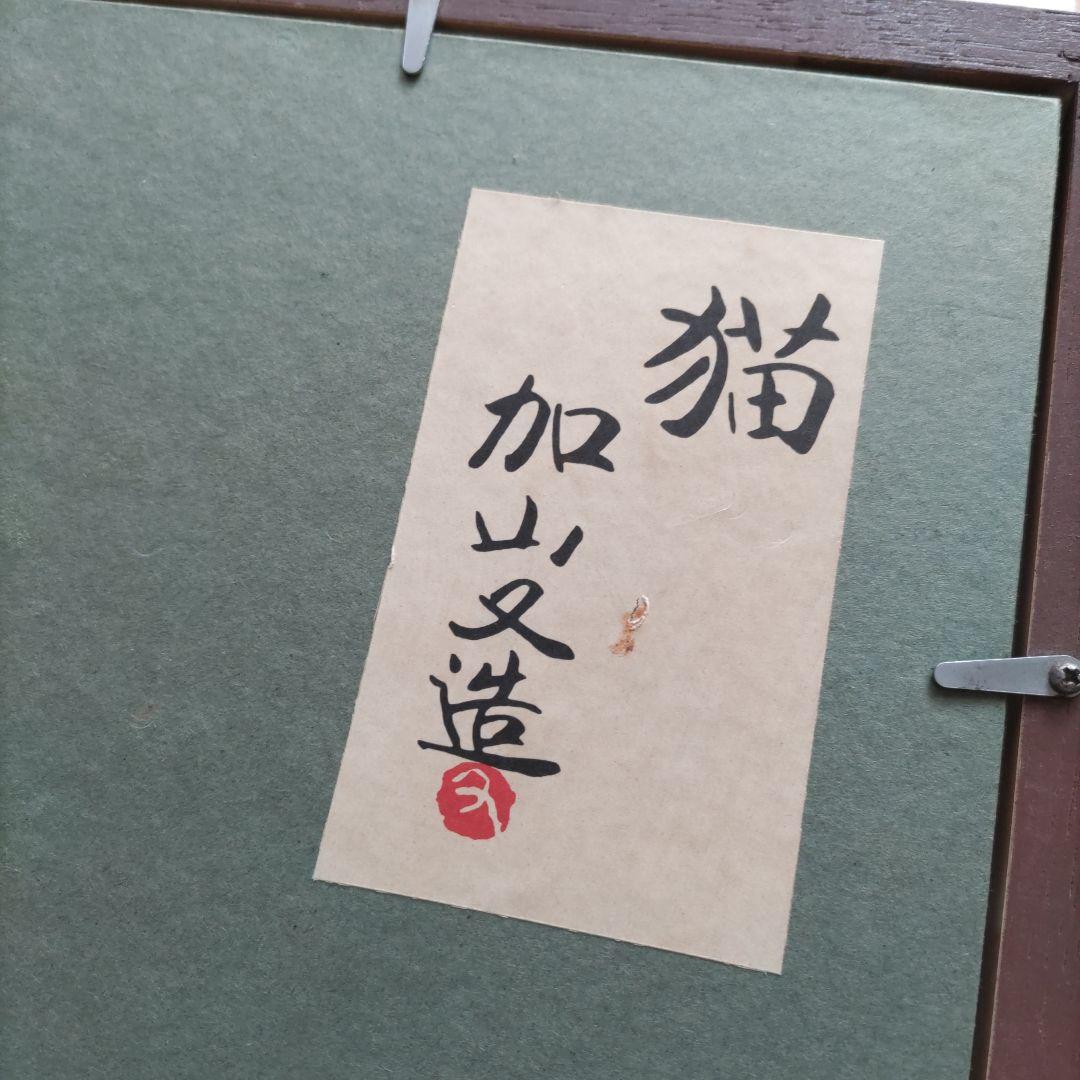 猫
加山又造
又